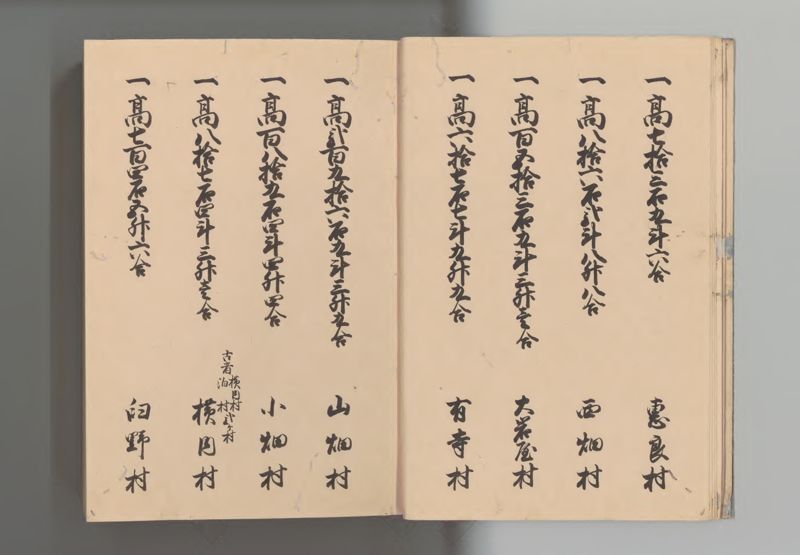 一高七拾三石五斗六合 恵良村
一高八拾六石弐斗八升八合 西畑村
一高百五拾三石五斗三升壱合 大岩屋村
一高六拾七石七斗九升九合 有寺村
一高弐百九拾六石九斗三升五合 山畑村
一高百八拾五石四斗四升四合 小畑村
古者横田村
泊村弐ケ村
一高八拾七石四斗三升壱合 横田村
一高七百四石五升六合 臼野村